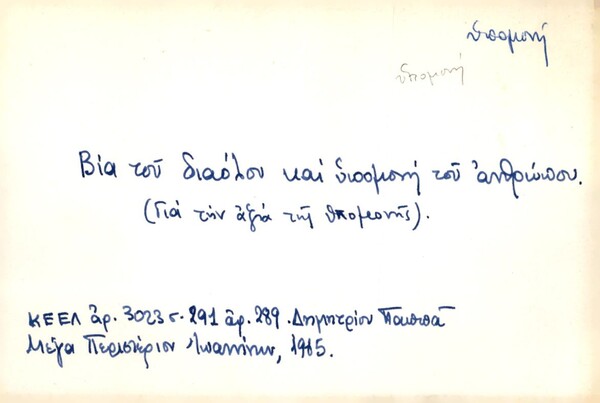 ὑπομονή
ὑπομονή
Βία τοῦ διαόλου καί ὑπομονή τοῦ ἀνθρώπου.
(Γιά τήν ἀξιά τῆς ὑπομονῆς).
ΚΕΕΛ ἀρ. 3023 σ. 291 ἀρ. 289. Δημητρίου Παππᾶ
Μέγα Περιστέριον Ἰωαννίνων, 1965.